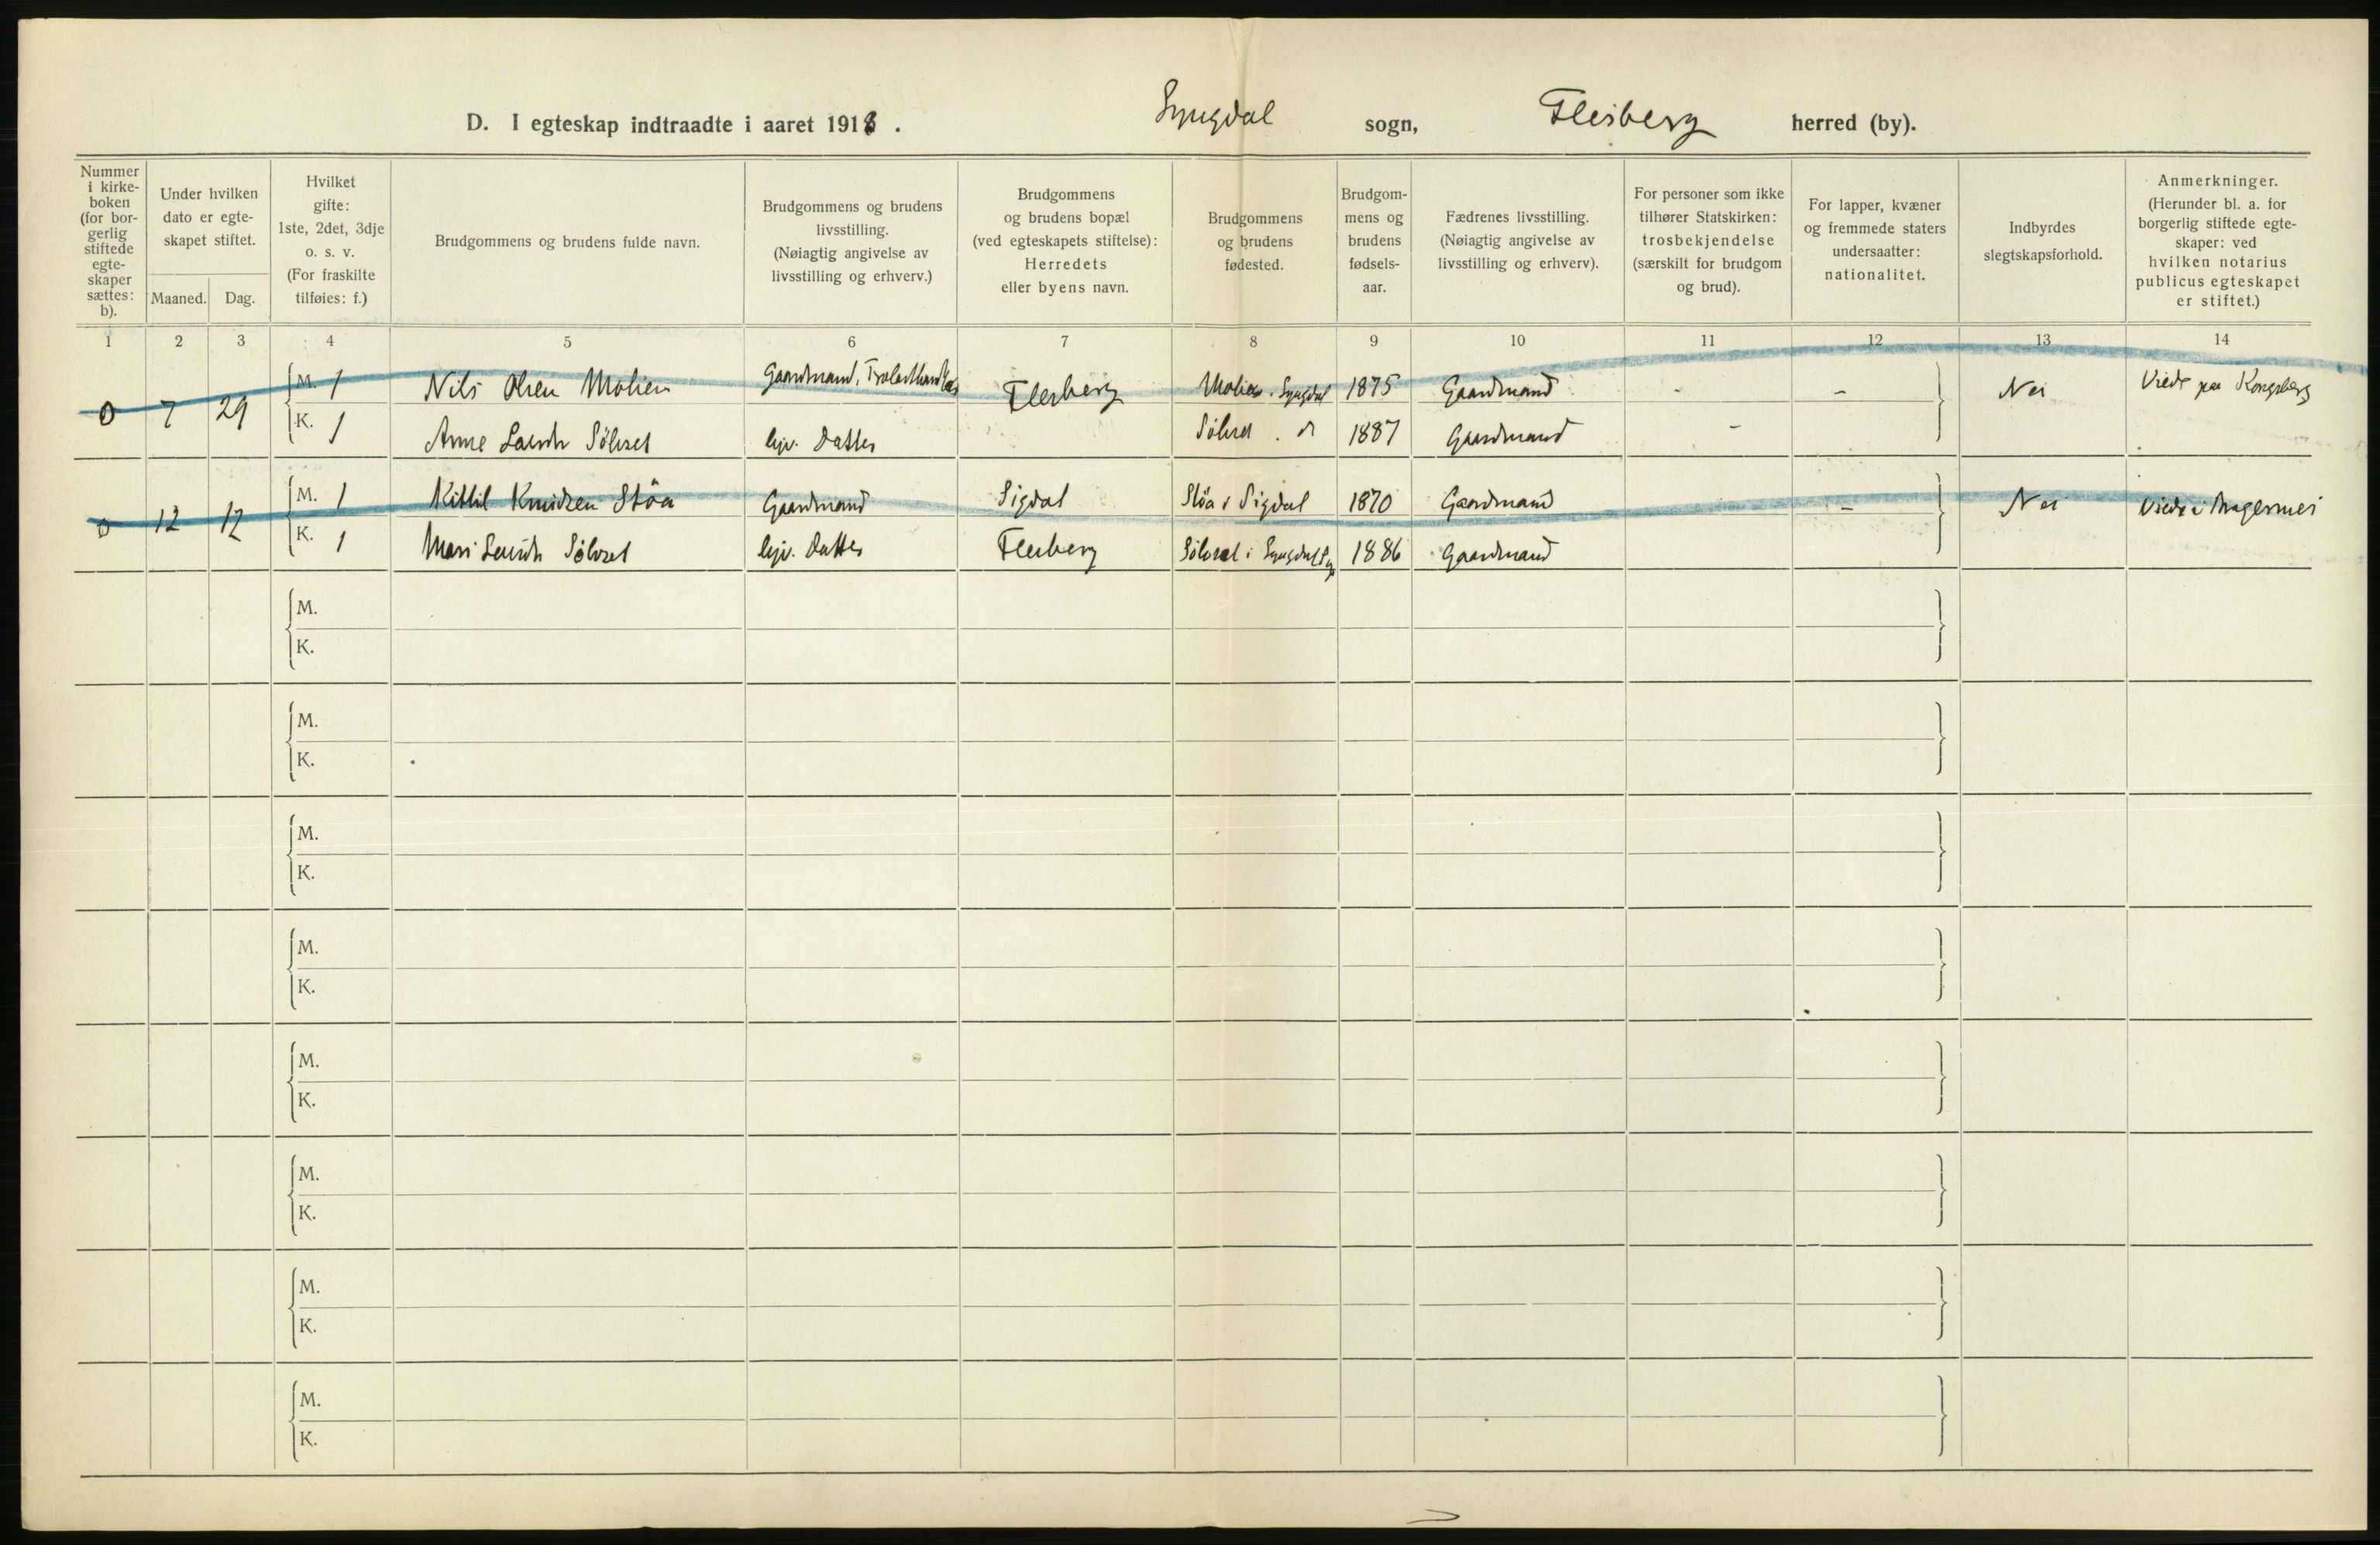 D. I egteskap indtraadte i aaret 1918. Lyngdal sogn, Flesberg herred (by).
Nummer i kirke-boken (for bor-gerlig stiftede egte-skaper sættes: b).
Under hvilken dato er egte-skapet stiftet.
Maaned. Dag.
Hvilket gifte: 1ste, 2det, 3dje o. s. v. (For fraskilte tilføies: f.)
Brudgommens og brudens fulde navn.
Brudgommens og brudens livsstilling. (Nøiagtig angivelse av livsstilling og erhverv.)
Brudgommens og brudens bopæl (ved egteskapets stiftelse): Herredets eller byens navn.
Brudgommens og brudens fødested.
Brudgom-mens og brudens fødsels-aar.
Fædrenes livsstilling. (Nøiagtig angivelse av livsstilling og erhverv).
For personer som ikke tilhører Statskirken: trosbekjendelse (særskilt for brudgom og brud).
For lapper, kvæner og fremmede staters undersaatter: nationalitet.
Indbyrdes slegtskapsforhold.
Anmerkninger. (Herunder bl. a. for borgerlig stiftede egte-skaper: ved hvilken notarius publicus egteskapet er stiftet.)
1 2 3 4 5 6 7 8 9 10 11 12 13 14
0 7 29 M. 1 Nils Olsen Molien Gaardmand, Flesberg Molien i Lyngdal 1875 Gaardmand - - Nei Viede paa Kongsberg
K. 1 Anne Larsdr Sölvset hjv. Datter Sölvset 1887 Gaardmand -
0 12 12 M. 1 Kittil Knudsen Stöa Gaardmand Sigdal Stöa i Sigdal 1870 Gaardmand - Nei Viede i Bragernes
K. 1 Mari Larsdr Sölvset hjv. Datter Flesberg Sölvset i Lyngdal 1886 Gaardmand
M.
K.
M.
K.
M.
K.
M.
K.
M.
K.
M.
K.
M.
K.
M.
K.